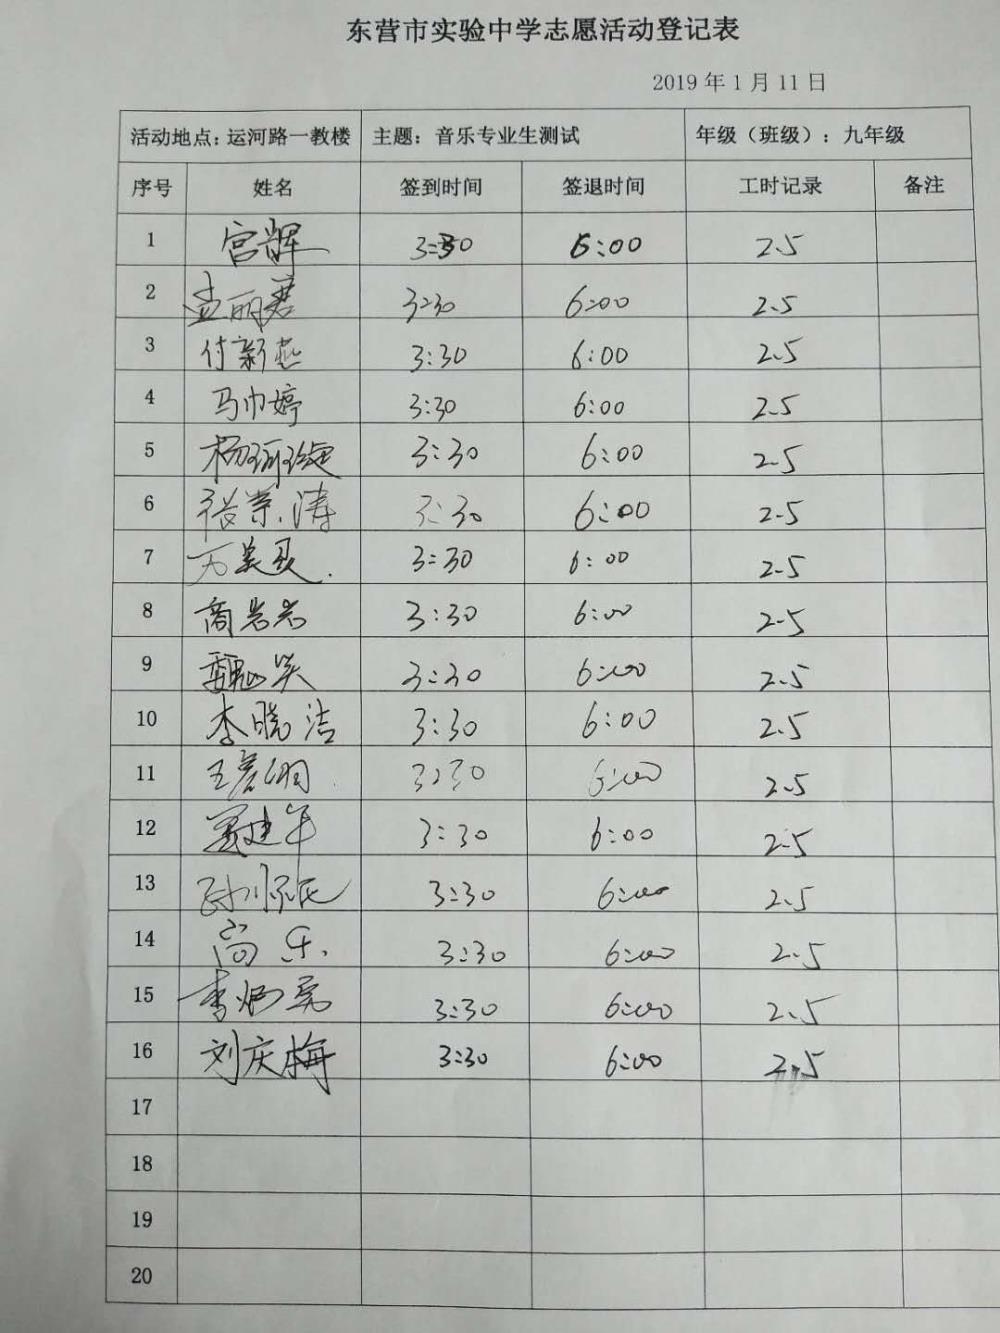 东营市实验中学志愿活动登记表
2019 年 1 月 11 日
活动地点：运河路一教楼 主题：音乐专业生测试 年级（班级）：九年级
序号 姓名 签到时间 签退时间 工时记录 备注
1 宫辉 3:30 6:00 2.5
2 孟丽君 3:30 6:00 2.5
3 付新燕 3:30 6:00 2.5
4 马巾婷 3:30 6:00 2.5
5 杨 3:30 6:00 2.5
6 张荣涛 3:30 6:00 2.5
7 3:30 6:00 2.5
8 商岩岩 3:30 6:00 2.5
9 魏 3:30 6:00 2.5
10 李晓洁 3:30 6:00 2.5
11 王 3:30 6:00 2.5
12 建军 3:30 6:00 2.5
13 孙 3:30 6:00 2.5
14 高乐 3:30 6:00 2.5
15 李炳亮 3:30 6:00 2.5
16 刘庆梅 3:30 6:00 2.5
17
18
19
20